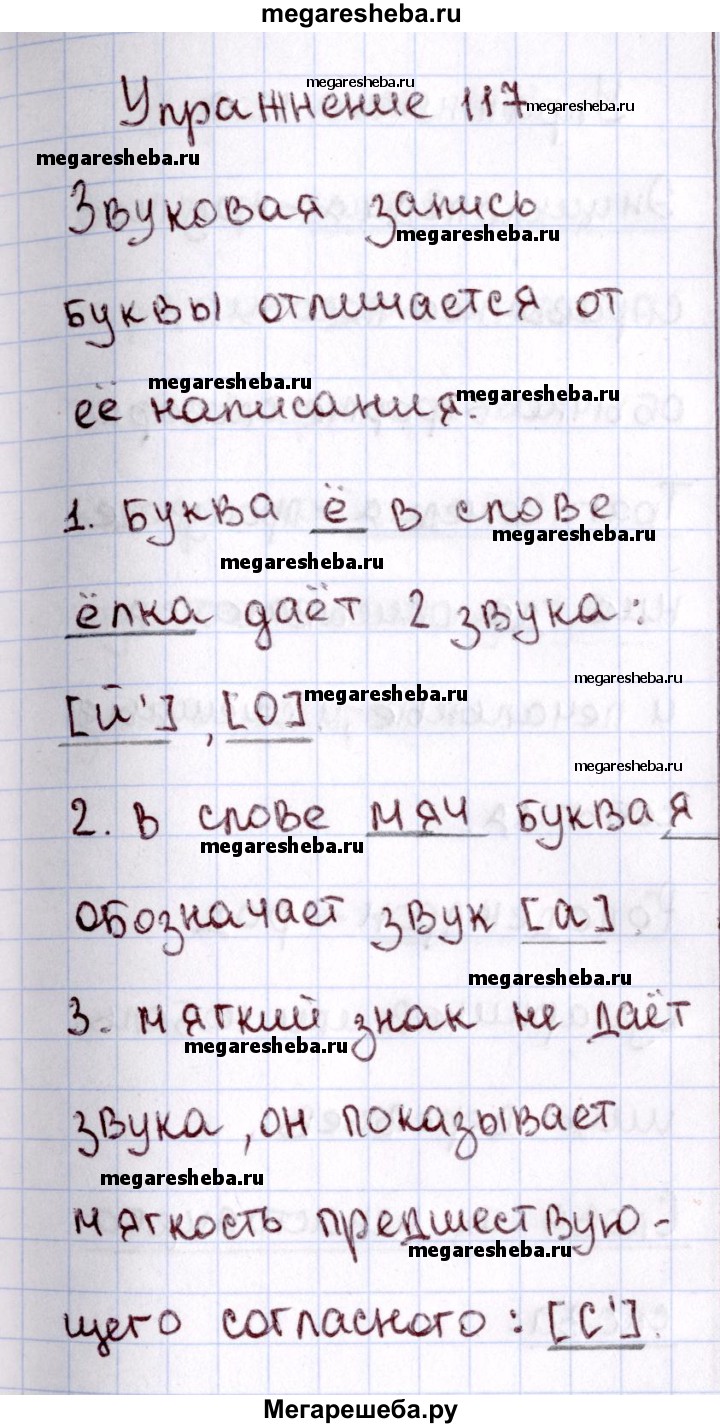 megaresheba.ru
megaresheba.ru
Упражнение 117
megaresheba.ru
megaresheba.ru
Звуковая запись
megaresheba.ru
буквы отличается от
megaresheba.ru
её написания.
megaresheba.ru
1. Буква ё в слове
megaresheba.ru
megaresheba.ru
ёлка даёт 2 звука:
megaresheba.ru
[й'], [о]
megaresheba.ru
megaresheba.ru
2. в слове мяч буква я
megaresheba.ru
обозначает звук [а]
megaresheba.ru
3. мягкий знак не даёт
megaresheba.ru
звука, он показывает
megaresheba.ru
мягкость предшествую-
megaresheba.ru
щего согласного: [с'].
Мегарешеба.ру